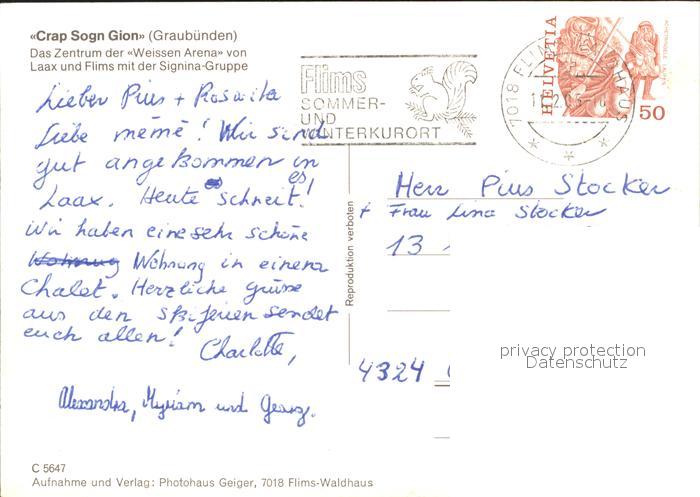 «Crap Sogn Gion» (Graubünden)
Das Zentrum der «Weissen Arena» von
Laax und Flims mit der Signina-Gruppe
Lieber Pius + Roswita
Liebe mémé! Wir sind
gut angekommen in
Laax. Heute schneit es!
Wir haben eine sehr schöne
Wohnung Wohnung in einem
Chalet. Herzliche Grüsse
aus den Skiferien sendet
euch allen!
Charlotte,
Alexandra, Myriam und Georg.
C 5647
Aufnahme und Verlag: Photohaus Geiger, 7018 Flims-Waldhaus
Reproduktion verboten
Flims
SOMMER-
UND
WINTERKURORT
7018 FLIMS WALDHAUS
HELVETIA
50
Herr Pius Stocker
+ Frau Lina Stocker
13
4324
privacy protection
Datenschutz